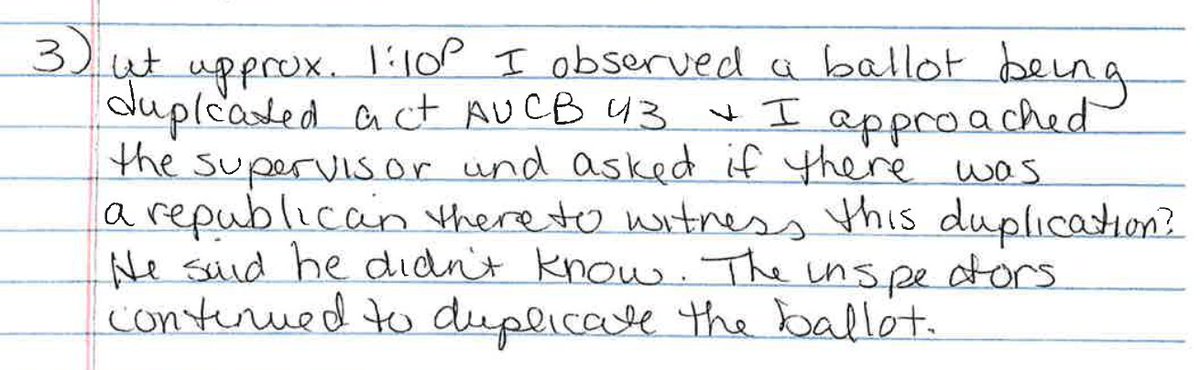 3) at approx. 1:10P I observed a ballot being
duplcated at AVCB 43 + I approached
the supervisor and asked if there was
a republican there to witness this duplication?
He said he didn't know. The inspectors
continued to duplicate the ballot.